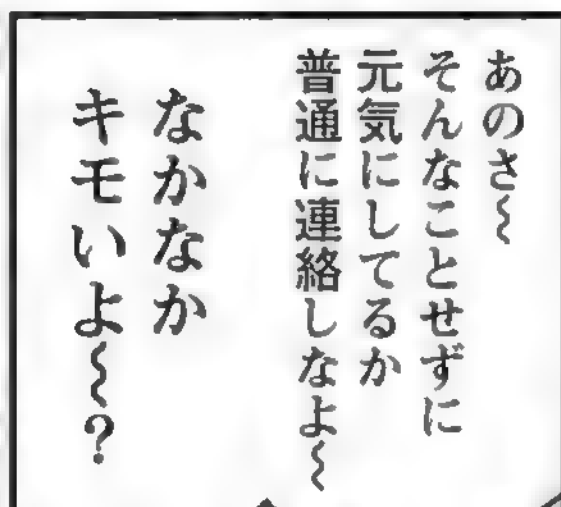 あのさ〜
そんなことせずに
元気にしてるか
普通に連絡しなよ〜
なかなか
キモいよ〜?